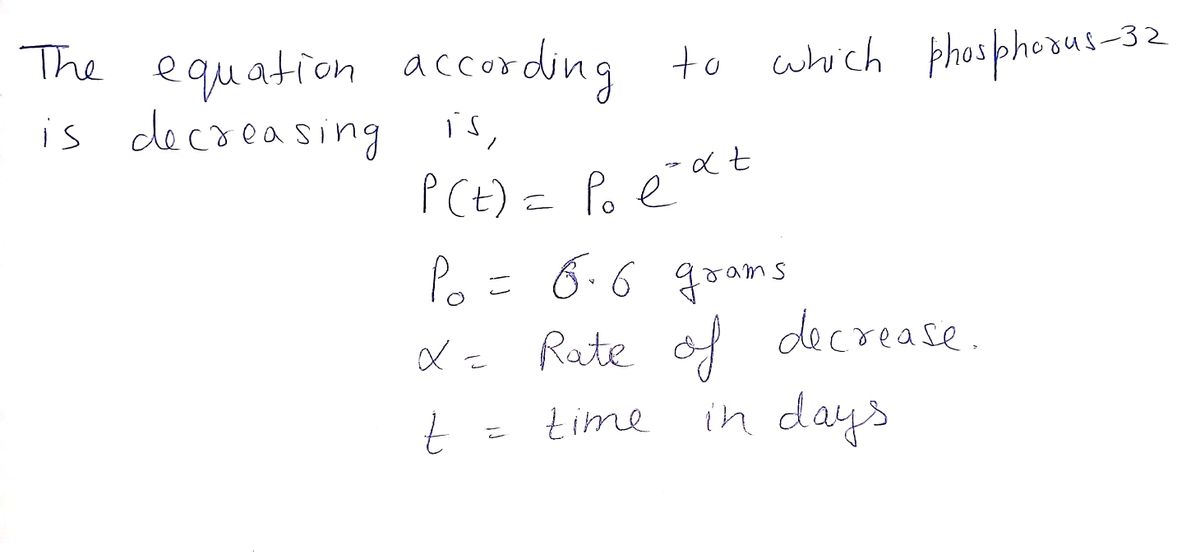 The equation according to which phosphorus-32
is decreasing is,
P(t) = P₀ e^-αt
P₀ = 6.6 grams
α = Rate of decrease.
t = time in days